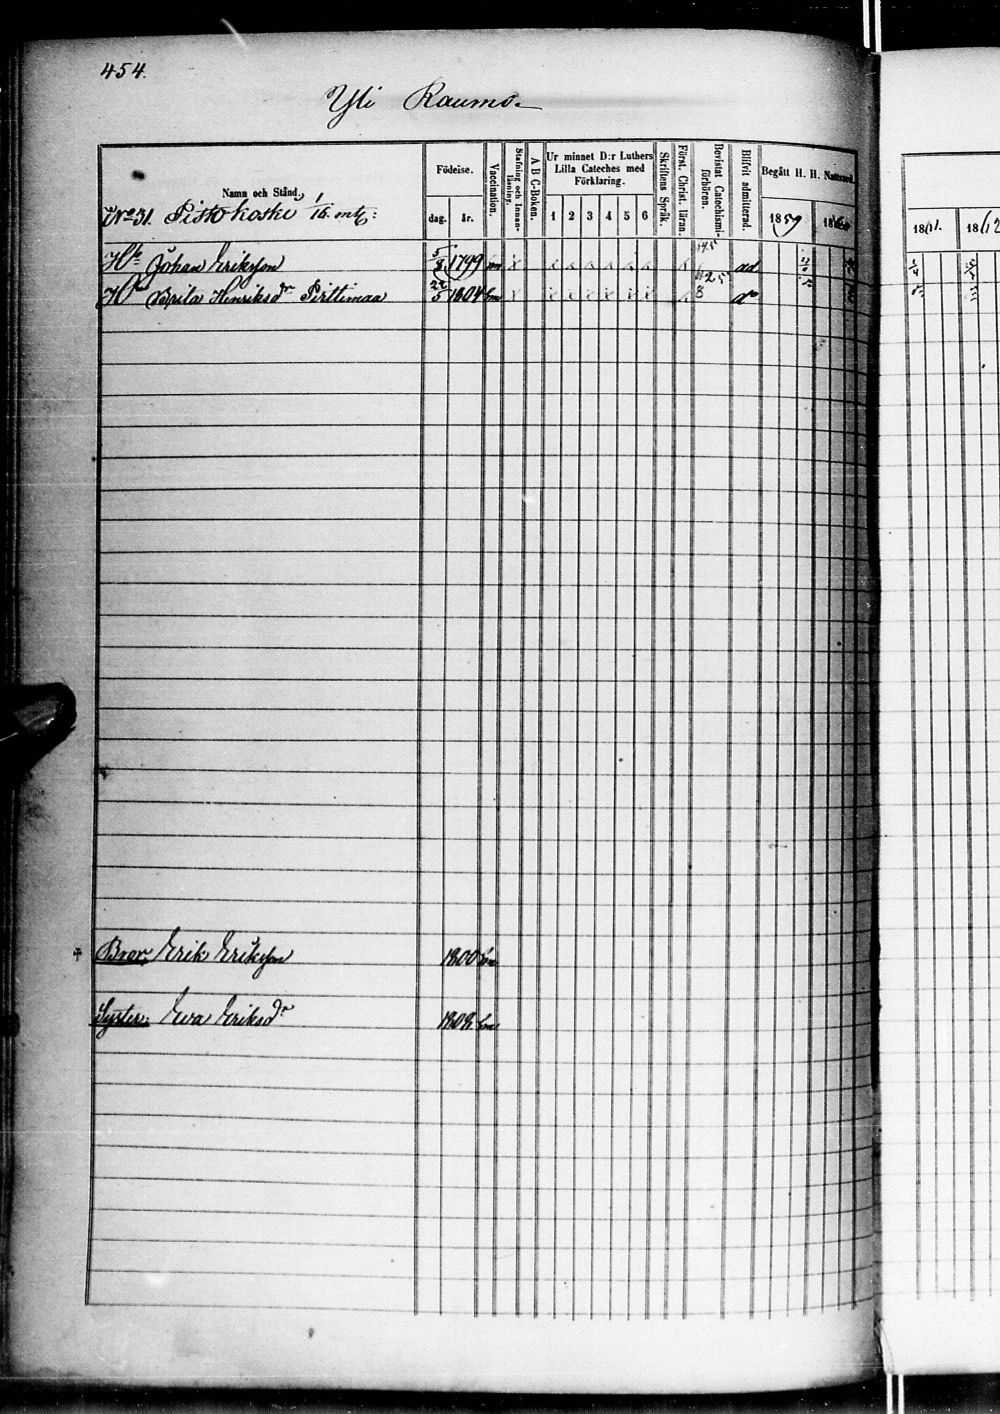 454.
Yli Raumo
Namn och Stånd.
Födelse.
dag.
år.
Vaccination.
Stafning och Innanläsning.
A B C-Boken.
Ur minnet D:r Luthers Lilla Cateches med Förklaring.
1 2 3 4 5 6
Skriftens Språk.
Först. Christ. läran.
Bevistat Catechismiförhören.
Blifvit admitterad.
Begått H. H. Nattvard.
1859 1860
1861. 1862
No 31. Pistokoski, 1/6 mtl:
Hb Johan Eriksson 5/8 1799
Hu Brita Henriksdr Pirttimaa 22/5 1804
Bror, Erik Eriksson 1800
Syster, Eva Eriksdr 1808